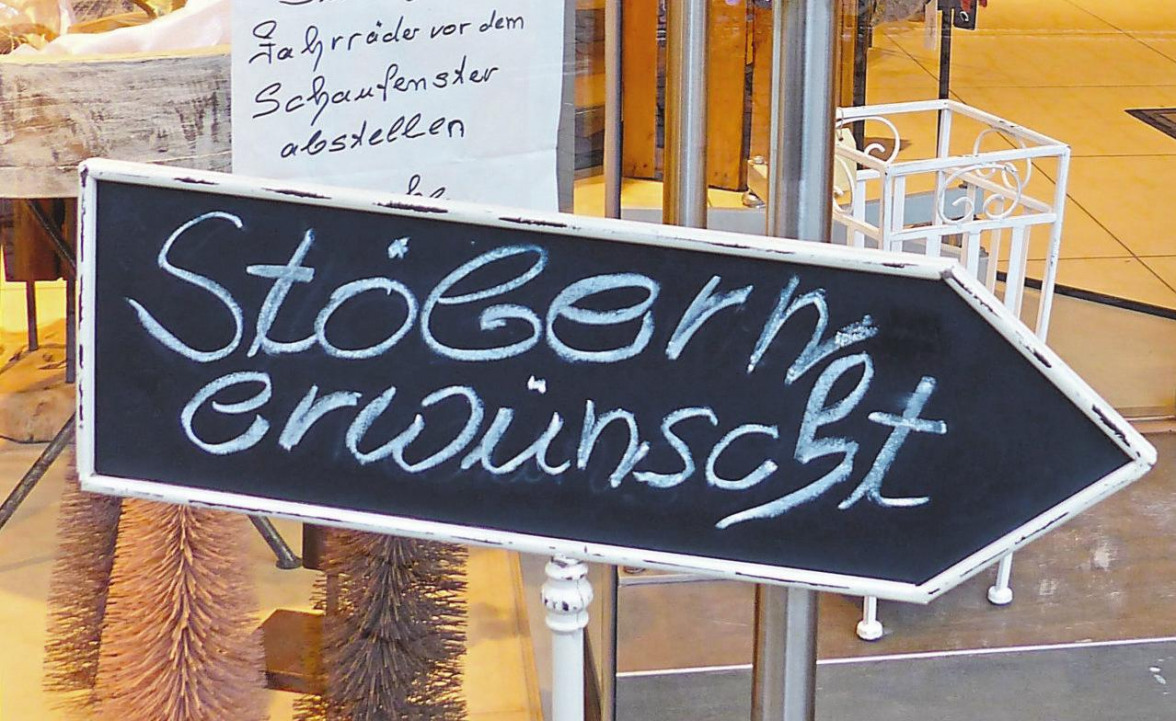 Fahrräder vor dem
Schaufenster
abstellen
Stöbern
erwünscht